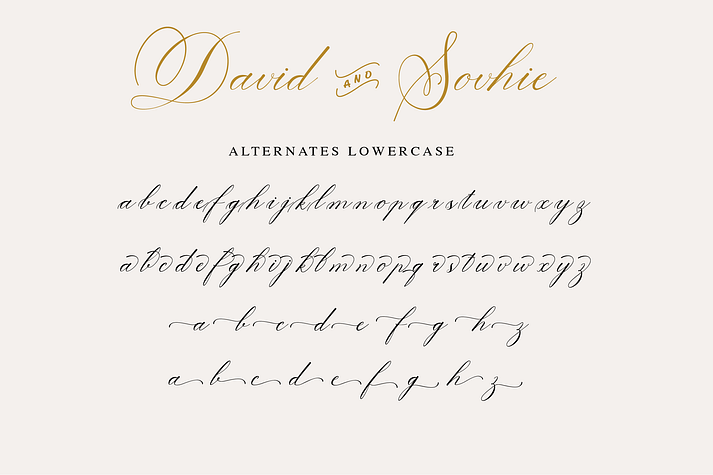 David AND Sovhie
ALTERNATES LOWERCASE
abcdefghijklmnopqrstuvwxyz
abcdefghijklmnopqrstuvwxyz
a b c d e f g h z
a b c d e f g h z